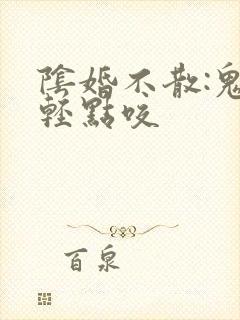 陰婚不散:鬼
輕點咬
百泉